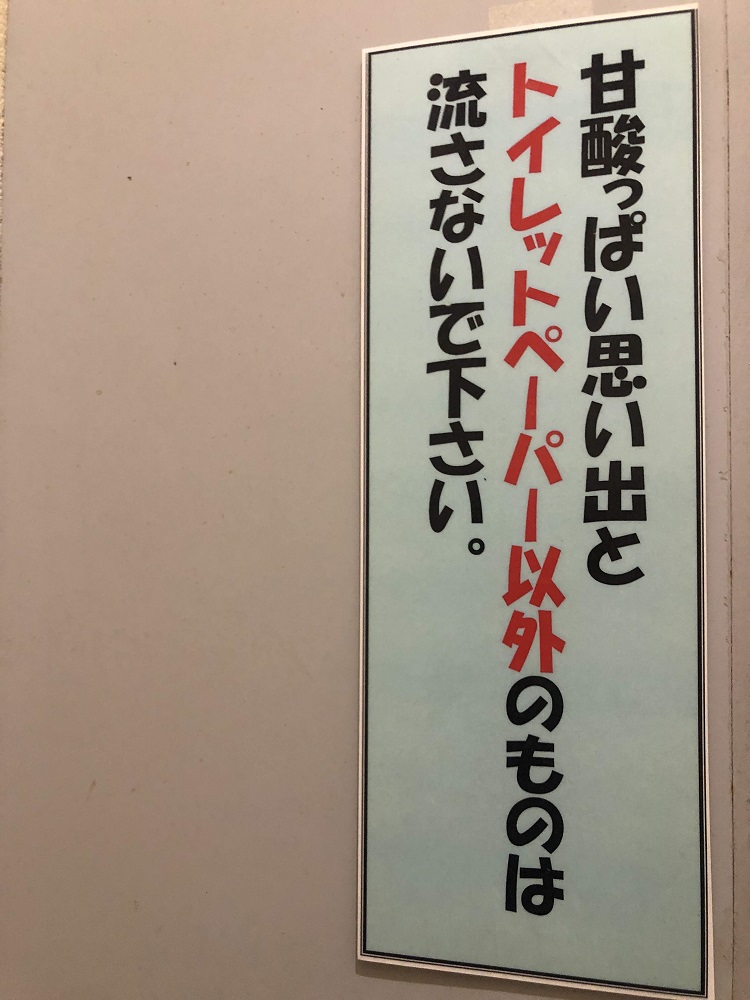 甘酸っぱい思い出と
トイレットペーパー以外のものは
流さないで下さい。